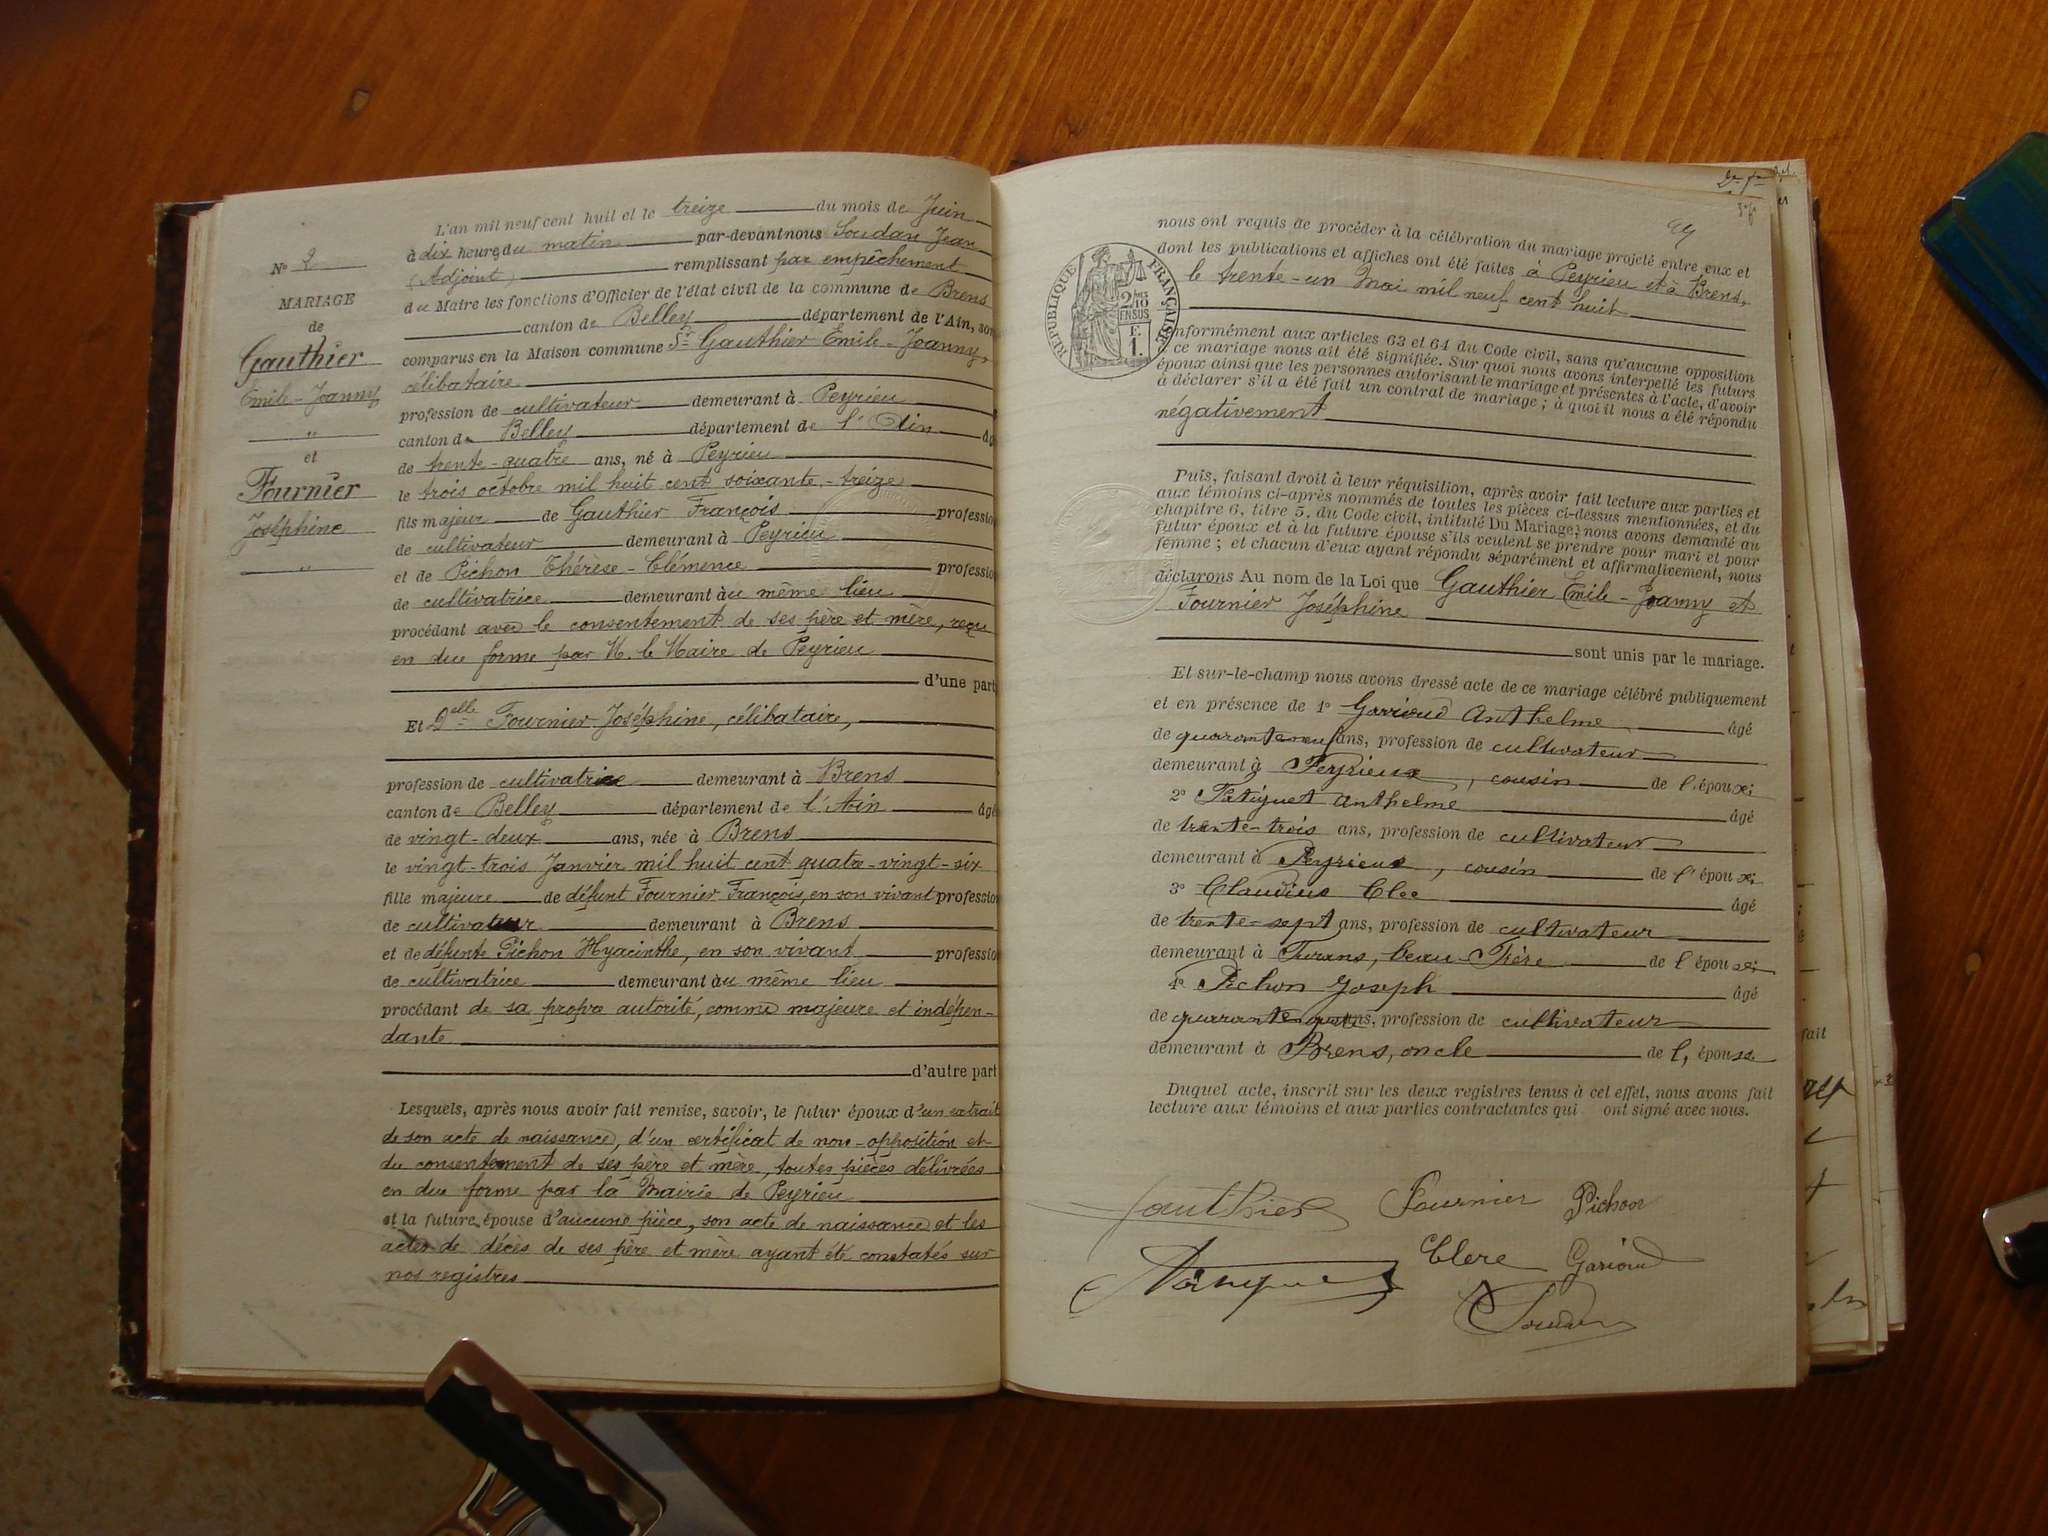 L'an mil neuf cent huit et le treize du mois de Juin
à dix heures du matin par-devant nous Soudan Jean
(Adjoint) remplissant par empêchement
du Maire les fonctions d'Officier de l'état civil de la commune de Brens
canton de Belley département de l'Ain, son
comparus en la Maison commune Sr Gauthier Emile-Joanny,
célibataire
profession de cultivateur demeurant à Peyrieu
canton de Belley département de l'Ain âg
de trente-quatre ans, né à Peyrieu
le trois octobre mil huit cent soixante-treize
fils majeur de Gauthier François profession
de cultivateur demeurant à Peyrieu
et de Pichon Thérèse-Clémence profession
de cultivatrice demeurant au même lieu
procédant avec le consentement de ses père et mère, reçu
en due forme par M. le Maire de Peyrieu
d'une part
Et Delle Fournier Joséphine, célibataire,
profession de cultivatrice demeurant à Brens
canton de Belley département de l'Ain âgé
de vingt-deux ans, née à Brens
le vingt-trois Janvier mil huit cent quatre-vingt-six
fille majeure de défunt Fournier François, en son vivant profession
de cultivateur demeurant à Brens
et de défunte Pichon Hyacinthe, en son vivant profession
de cultivatrice demeurant au même lieu
procédant de sa propre autorité, comme majeure et indépen-
dante
d'autre part
Lesquels, après nous avoir fait remise, savoir, le futur époux d'un extrait
de son acte de naissance, d'un certificat de non-opposition et
du consentement de ses père et mère, toutes pièces délivrées
en due forme par la Mairie de Peyrieu
et la future épouse d'aucune pièce, son acte de naissance et les
actes de décès de ses père et mère ayant été constatés sur
nos registres
N° 2
MARIAGE
de
Gauthier
Emile-Joanny
"
et
Fournier
Joséphine
"
nous ont requis de procéder à la célébration du mariage projeté entre eux et
dont les publications et affiches ont été faites à Peyrieu et à Brens,
le trente-un Mai mil neuf cent huit
RÉPUBLIQUE FRANÇAISE
2/10
EN SUS
F.
1.
conformément aux articles 63 et 64 du Code civil, sans qu'aucune opposition
à ce mariage nous ait été signifiée. Sur quoi nous avons interpellé les futurs
époux ainsi que les personnes autorisant le mariage et présentes à l'acte, d'avoir
à déclarer s'il a été fait un contrat de mariage; à quoi il nous a été répondu
négativement
Puis, faisant droit à leur réquisition, après avoir fait lecture aux parties et
aux témoins ci-après nommés de toutes les pièces ci-dessus mentionnées, et du
chapitre 6, titre 5, du Code civil, intitulé Du Mariage; nous avons demandé au
futur époux et à la future épouse s'ils veulent se prendre pour mari et pour
femme; et chacun d'eux ayant répondu séparément et affirmativement, nous
déclarons Au nom de la Loi que Gauthier Emile-Joanny et
Fournier Joséphine
sont unis par le mariage.
Et sur-le-champ nous avons dressé acte de ce mariage célébré publiquement
et en présence de 1° Garrioud Anthelme âgé
de quarante neuf ans, profession de cultivateur
demeurant à Peyrieux, cousin de l'époux;
2° Anthelme âgé
de trente-trois ans, profession de cultivateur
demeurant à Peyrieux, cousin de l'époux;
3° Claudius Clee âgé
de trente-sept ans, profession de cultivateur
demeurant à beau-Frère de l'épou
4° Pichon Joseph âgé
de quarante ans, profession de cultivateur
demeurant à Brens, oncle de l, épouse
Duquel acte, inscrit sur les deux registres tenus à cet effet, nous avons fait
lecture aux témoins et aux parties contractantes qui ont signé avec nous.
Gauthier Fournier Pichon
Clere Garioud
Soudan